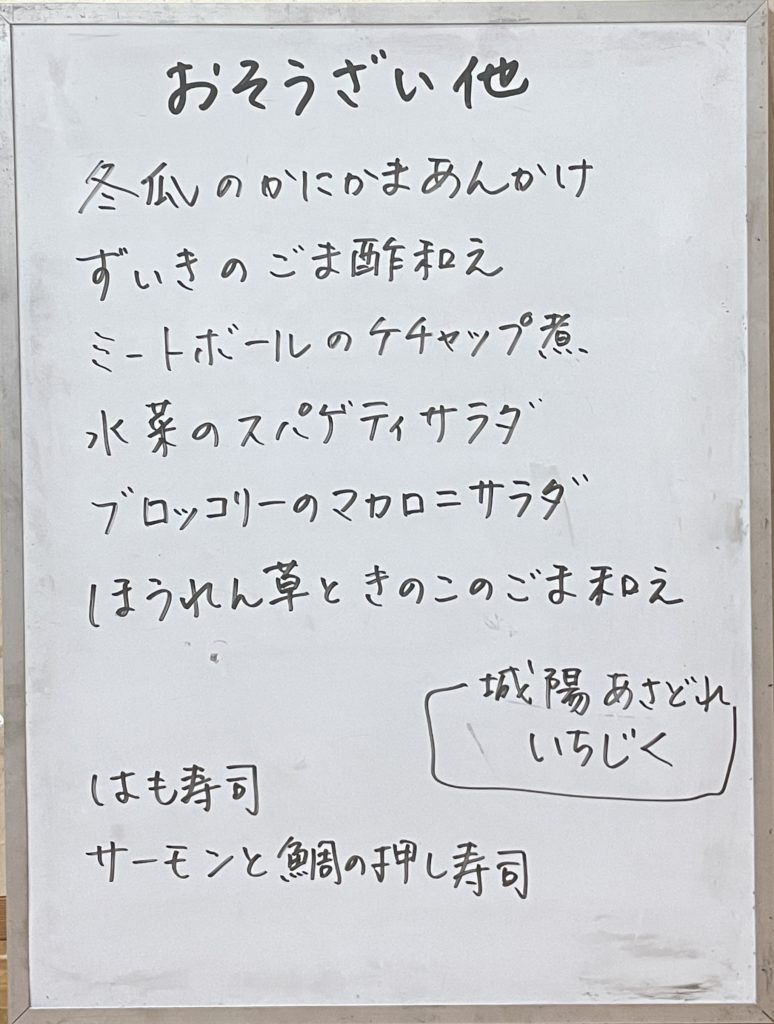 おそうざい他
冬瓜のかにかまあんかけ
ずいきのごま酢和え
ミートボールのケチャップ煮
水菜のスパゲティサラダ
ブロッコリーのマカロニサラダ
ほうれん草ときのこのごま和え
城陽あさどれ
いちじく
はも寿司
サーモンと鯛の押し寿司